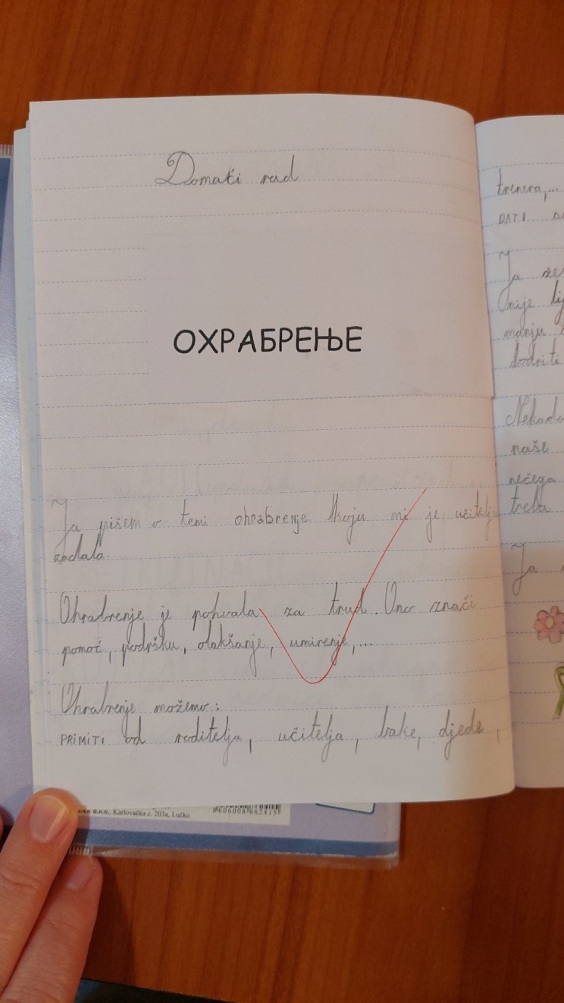 Domaći rad
ОХРАБРЕЊЕ
Ja pišem o temi ohrabrenje koju mi je učitelj
zadala.
Ohrabrenje je pohvala za trud. Ono znači
pomoć, podršku, olakšanje, umirenje,...
Ohrabrenje možemo:
PRIMITI od roditelja, učitelja, bake, djede,
trenera,...
DATI
Ja
nije
manju
Nekada
naše
nečega
treba
Ja
Karlovačka c. 203a, Lučko